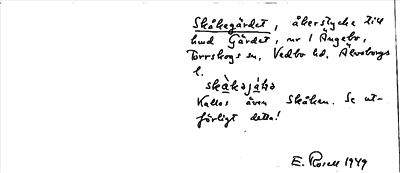 Skåkegärdet, åkerstycke till
hmd Gärdet, nr 1 Ängebo,
Torrskogs sn, Vedbo hd, Älvsborgs
l.
Kallas även Skåken. Se ut-
förligt detta!
E. Rosell 1949